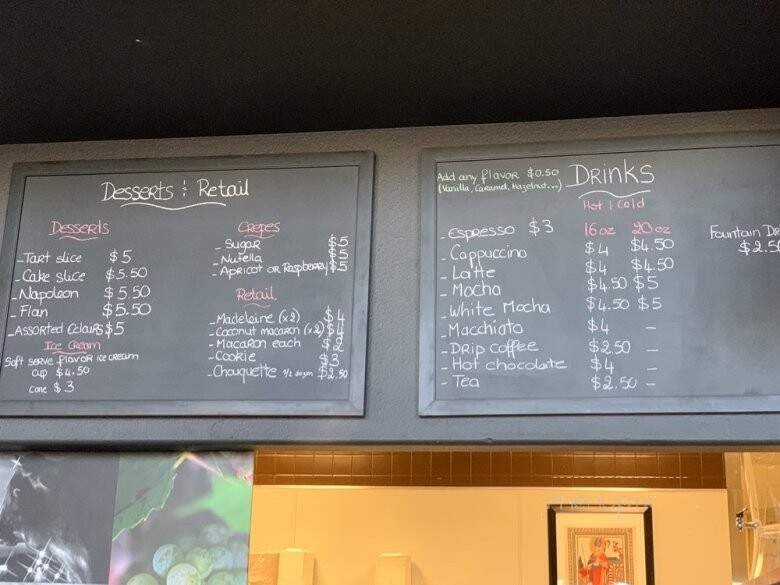 Desserts & Retail
Desserts
- Tart slice $5
- Cake slice $5.50
- Napoleon $5.50
- Flan $5.50
- Assorted Eclairs $5
Ice Cream
Soft serve flavor ice cream
cup $4.50
cone $3
Crepes
- Sugar $5
- Nutella $5
- Apricot or Raspberry $5
Retail
- Madeleine (x2) $4
- Coconut macaron (x2)
- Macaron each
- Cookie $3
- Chouquette 1/2 dozen $2.50
Add any flavor $0.50
(Vanilla, Caramel, Hazelnut...)
Drinks
Hot | Cold
16oz 20oz
- Espresso $3
- Cappuccino $4 $4.50
- Latte $4 $4.50
- Mocha $4.50 $5
- White Mocha $4.50 $5
- Macchiato $4 -
- Drip Coffee $2.50 -
- Hot chocolate $4 -
- Tea $2.50 -
Fountain Dr
$2.50